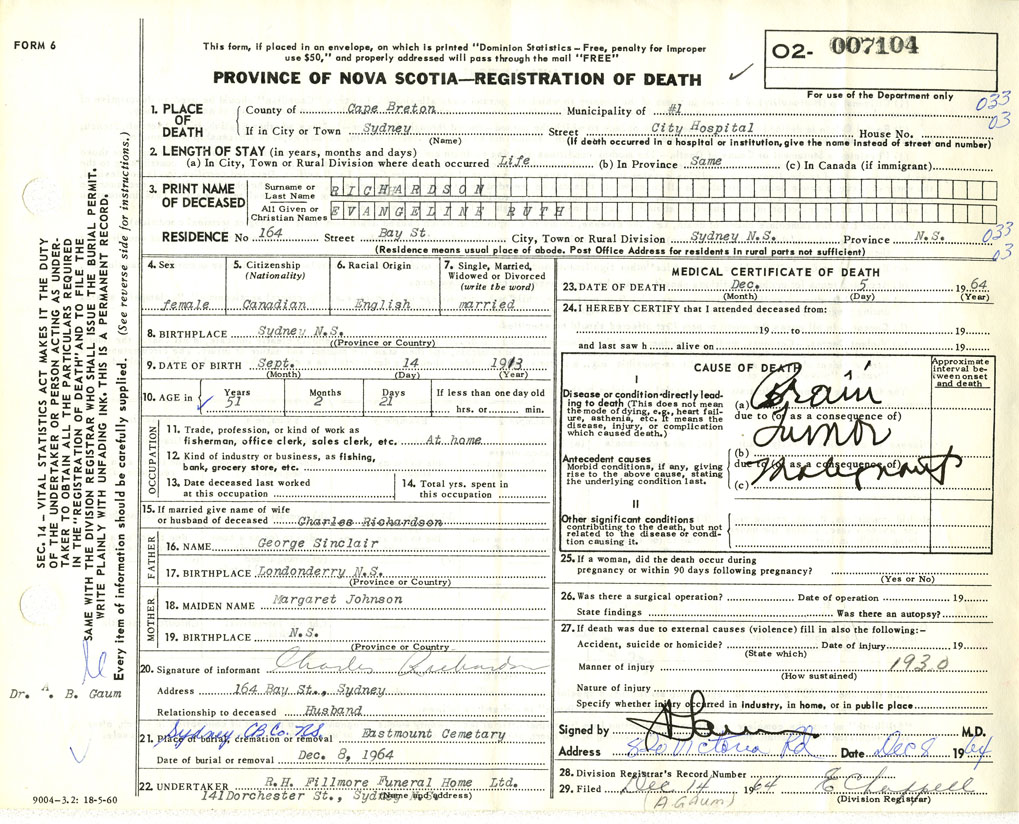 FORM 6
This form, if placed in an envelope, on which is printed "Dominion Statistics – Free, penalty for improper
use $50," and properly addressed will pass through the mail "FREE"
PROVINCE OF NOVA SCOTIA—REGISTRATION OF DEATH
O2- 007104
For use of the Department only
033
03
1. PLACE OF DEATH
County of Cape Breton Municipality of #1
If in City or Town Sydney Street City Hospital House No.
(Name) (If death occurred in a hospital or institution, give the name instead of street and number)
2. LENGTH OF STAY (in years, months and days)
(a) In City, Town or Rural Division where death occurred Life (b) In Province Same (c) In Canada (if immigrant)
3. PRINT NAME OF DECEASED
Surname or Last Name RICHARDSON
All Given or Christian Names EVANGELINE RUTH
RESIDENCE No 164 Street Bay St. City, Town or Rural Division Sydney N.S. Province N.S.
033
03
(Residence means usual place of abode. Post Office Address for residents in rural parts not sufficient)
4. Sex
female
5. Citizenship
(Nationality)
Canadian
6. Racial Origin
English
7. Single, Married, Widowed or Divorced
(write the word)
married
8. BIRTHPLACE Sydney N.S.
((Province or Country)
9. DATE OF BIRTH Sept. 14 1913
(Month) (Day) (Year)
10. AGE in
Years 51
Months 2
Days 21
If less than one day old
hrs. or min.
OCCUPATION
11. Trade, profession, or kind of work as
fisherman, office clerk, sales clerk, etc. At home
12. Kind of industry or business, as fishing,
bank, grocery store, etc.
13. Date deceased last worked
at this occupation
14. Total yrs. spent in
this occupation
15. If married give name of wife
or husband of deceased Charles Richardson
FATHER
16. NAME George Sinclair
17. BIRTHPLACE Londonderry N.S.
(Province or Country)
MOTHER
18. MAIDEN NAME Margaret Johnson
19. BIRTHPLACE N.S.
(Province or Country
20. Signature of informant Charles Richardson
Address 164 Bay St., Sydney
Relationship to deceased Husband
21. Place of burial, cremation or removal Eastmount Cemetary
Sydney CB Co. N.S.
Date of burial or removal Dec. 8, 1964
22. UNDERTAKER R.H. Fillmore Funeral Home Ltd.
141Dorchester St., Sydney N.S.
(Name and address)
MEDICAL CERTIFICATE OF DEATH
23. DATE OF DEATH Dec. 5 1964
(Month) (Day) (Year)
24. I HEREBY CERTIFY that I attended deceased from:
19 to 19
and last saw h alive on 19
CAUSE OF DEATH
Approximate interval between onset and death
I
Disease or condition directly leading to death (This does not mean the mode of dying, e.g., heart failure, asthenia, etc. It means the disease, injury, or complication which caused death.)
(a) Brain
due to (or as a consequence of)
Tumor
Antecedent causes
Morbid conditions, if any, giving rise to the above cause, stating the underlying condition last.
(b)
due to (or as a consequence of)
Malignant
(c)
II
Other significant conditions
contributing to the death, but not related to the disease or condition causing it.
25. If a woman, did the death occur during
pregnancy or within 90 days following pregnancy?
(Yes or No)
26. Was there a surgical operation? Date of operation 19
State findings Was there an autopsy?
27. If death was due to external causes (violence) fill in also the following:–
Accident, suicide or homicide? Date of injury 19
(State which)
Manner of injury 1930
(How sustained)
Nature of injury
Specify whether injury occurred in industry, in home, or in public place
Signed by M.D.
Address Victoria Rd Date Dec 8 1964
28. Division Registrar's Record Number
29. Filed Dec 14 1964 E Chappell
(A GAUM) (Division Registrar)
SEC. 14 – VITAL STATISTICS ACT MAKES IT THE DUTY
OF THE UNDERTAKER OR PERSON ACTING AS UNDER-
TAKER TO OBTAIN ALL THE PARTICULARS REQUIRED
IN THE "REGISTRATION OF DEATH" AND TO FILE THE
SAME WITH THE DIVISION REGISTRAR WHO SHALL ISSUE THE BURIAL PERMIT.
WRITE PLAINLY WITH UNFADING INK. THIS IS A PERMANENT RECORD.
Every item of information should be carefully supplied. (See reverse side for instructions.)
Dr. A. B. Gaum
9004-3.2: 18-5-60